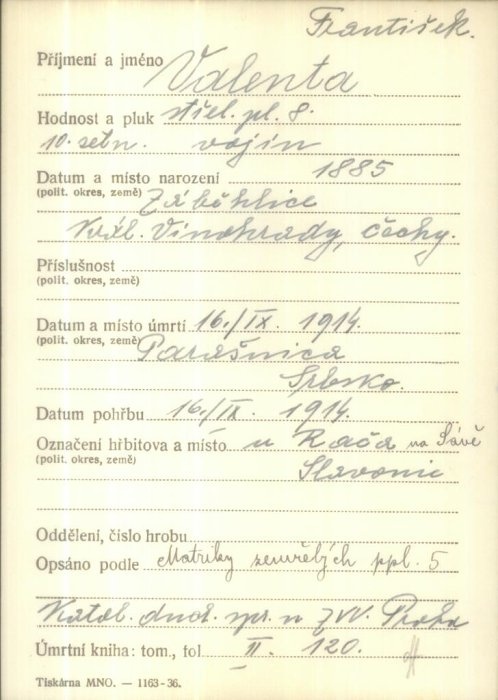 František.
Příjmení a jméno Valenta
Hodnost a pluk střel. pl. 8.
10. setn. vojín
Datum a místo narození 1885
(polit. okres, země) Záběhlice
Král. Vinohrady, Čechy.
Příslušnost
(polit. okres, země)
Datum a místo úmrtí 16./IX. 1914.
(polit. okres, země) Parašnica
Srbsko.
Datum pohřbu 16./IX. 1914.
Označení hřbitova a místo u Rača na Sávě
(polit. okres, země) Slavonie
Oddělení, číslo hrobu
Opsáno podle Matriky zemřelých ppl. 5
Katol. duch. spr. u ZVV. Praha
Úmrtní kniha: tom., fol II. 120.
Tiskárna MNO. — 1163-36.